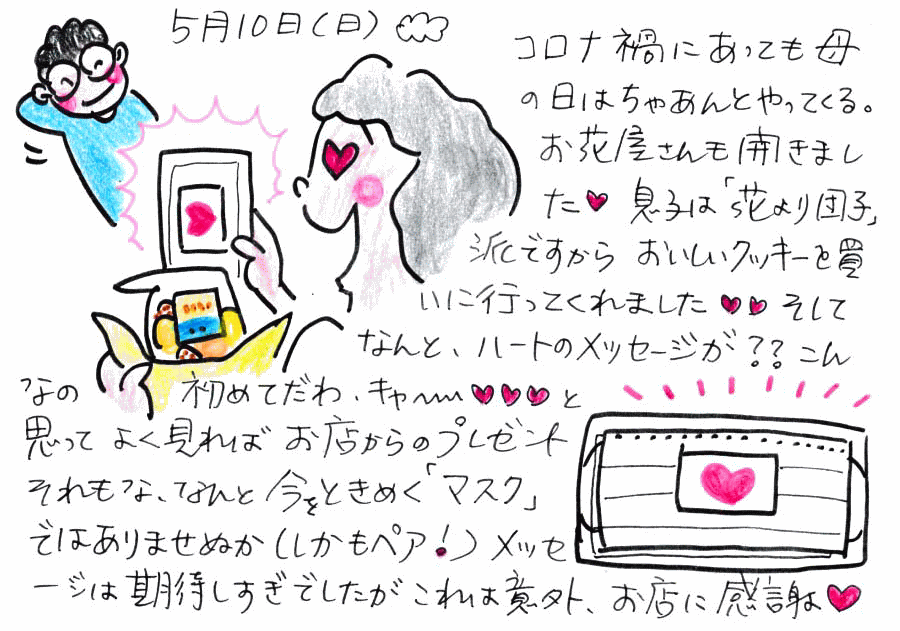 5月10日(日)
コロナ禍にあっても母
の日はちゃあんとやってくる。
お花屋さんも開きまし
た♥ 息子は「花より団子」
派ですから おいしいクッキーを買
いに行ってくれました♥♥ そして
なんと、ハートのメッセージが??こん
なの 初めてだわ、キャ〜〜♥♥♥と
思って よく見れば お店からのプレゼント
それもな、なんと 今をときめく「マスク」
ではありませぬか(しかもペア!)メッセ
ージは期待しすぎでしたが これは意外、お店に感謝よ♥